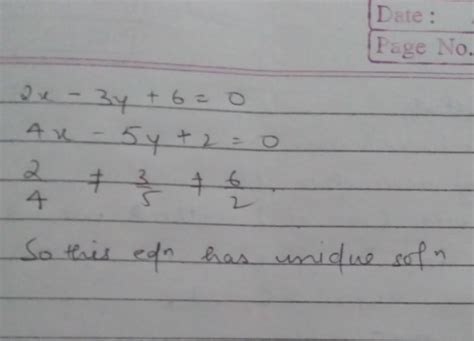 Date :
Page No.
2x - 3y + 6 = 0
4x - 5y + 2 = 0
2/4 ≠ 3/5 ≠ 6/2
So this eqn has unique soln